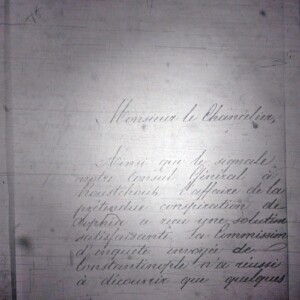 Monsieur le Chancelier,
Ainsi que le signale
notre Consul Général à
Roustchouk l'affaire de la
prétendue conspiration de
a reçu une solution
satisfaisante. La Commission
d'enquête envoyée de
Constantinople n'a réussi
à découvrir que quelques